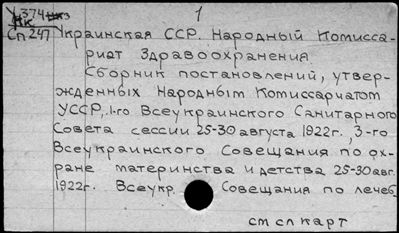 У374
НК
Сп247
1
Украинская ССР. Народный Комисса-
риат Здравоохранения.
Сборник постановлений, утвер-
жденных Народным Комиссариатом
УССР, 1-го Всеукраинского Санитарного
Совета сессии 25-30 августа 1922г., 3-го
Всеукраинского Совещания по ох-
ране материнства и детства 25-30 авг.
1922г. Всеукр. Совещания по лечеб.
см сл карт